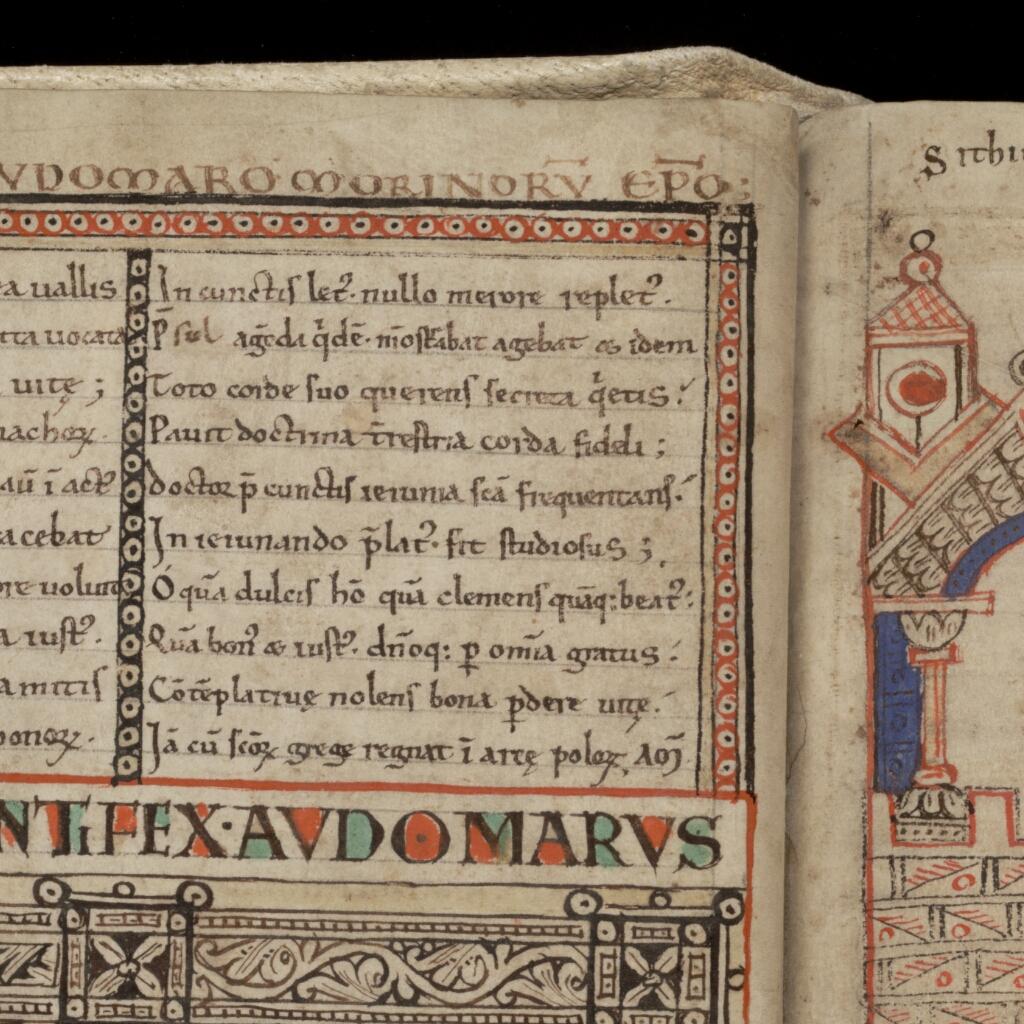 VDOMARO MORINORV̄ EP̄O;
Sithiu
a uallis
tta uocata
uitę ;
achoꝝ.
aū ī act᷒
acebat
re uolunt
a iust᷒.
amitis
bonoꝝ.
In cunctis let᷒. nullo merore replet᷒.
P̄sul agēda q̄dē. mōstrabat agebat & idem
Toto corde suo querens secreta q̄etis :
Pauit doctrina t̄restria corda fideli ;
doctor p̄ cunctis ieiunia sc̄a frequentans.
In ieiunando p̄lat᷒. fit studiosus ;
O quā dulcis hō quā clemens quāq: beat᷒:
Quā bon᷒ & iust᷒. dn̄oq: ꝑ om̄ia gratus :
Cōtēplatiuę nolens bona ꝑdere uitę.
Iā cū sc̄oꝝ grege regnat ī arce poloꝝ AM̄
NTIFEX·AVDOMARVS